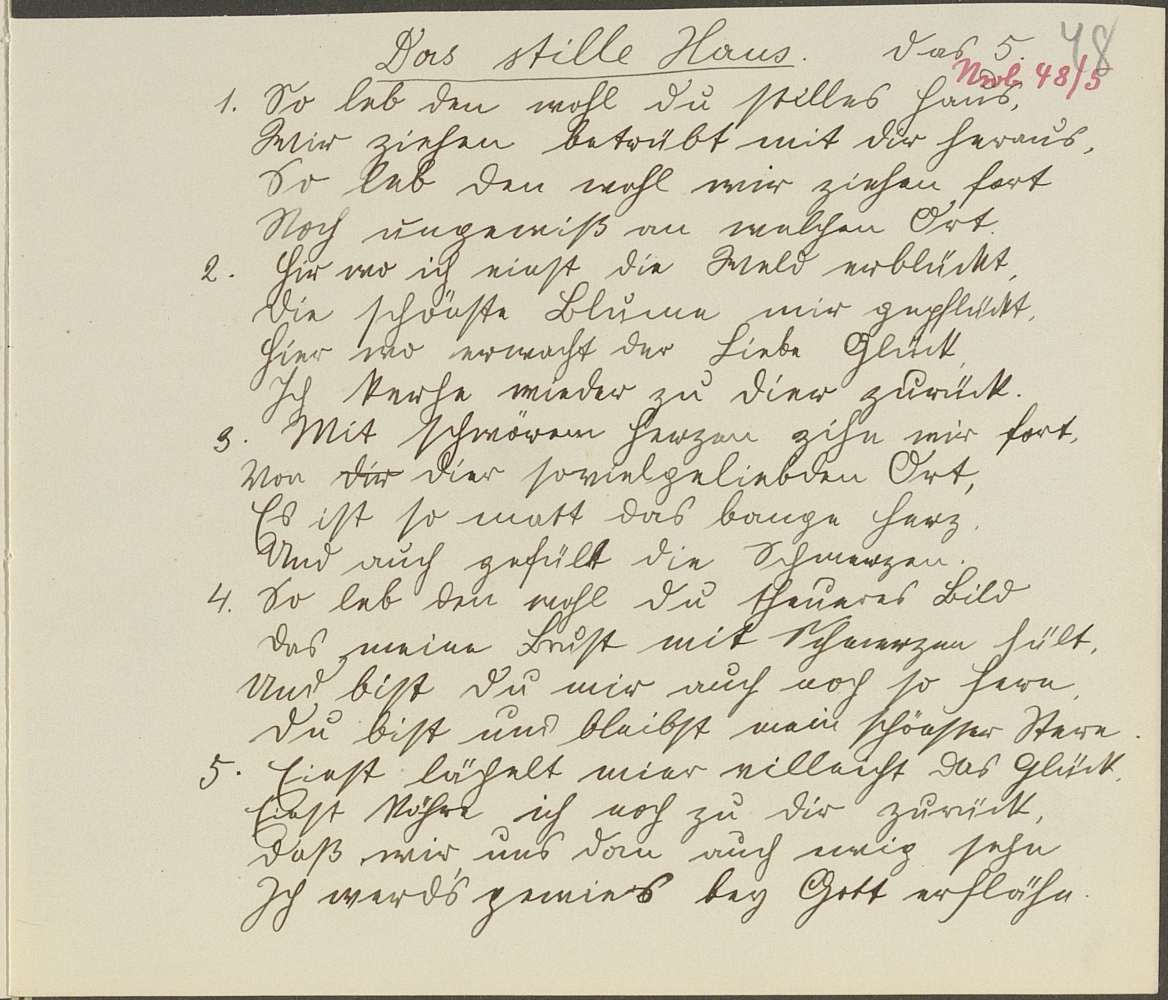 Das stille Haus. das 5. 48
Nro 48/5
1. So leb den wohl du stilles Haus,
Wir ziehen betrübt mit dir heraus,
So leb den wohl wir ziehen fort
Noch ungewiß an welchen Ort.
2. Hir wo ich einst die Weld erblückt,
Die schönste Blume mir gepflückt,
Hier wo erwacht der Liebe Glück
Ich kerhe wieder zu dier zurück.
3. Mit schwörem Herzen zihn wir fort,
Von dir dier sovielgeliebden Ort,
Es ist so matt das bange Herz.
Und auch gefült die Schmerzen.
4. So leb den wohl du theueres Bild
das meine Brust mit Schmerzen hült,
Und bist du mir auch noch so fern,
Du bist und bleibst mein schönster Stern.
5. Einst lächelt mier villeicht das Glück,
Einst köhre ich noch zu dir zurück,
daß wir uns dan auch ewig sehn
Ich werd's gewies bey Gott erflähn.